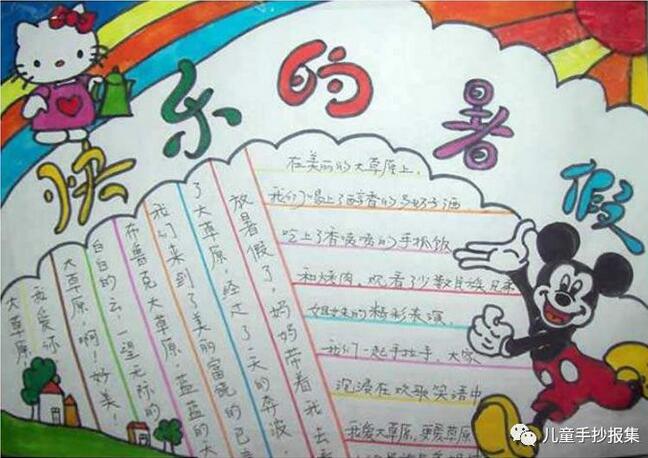 快乐的暑假
放暑假了，妈妈带着我去看
了大草原，经过了一天的奔波，
我们来到了美丽富饶的巴音
布鲁克大草原，蓝蓝的大
白白的云，一望无际的
大草原，啊！妙美！
我爱你
大草原
在美丽的大草原上，
我们喝上了醇香的马奶子酒
吃上了香喷喷的手抓饭
和烤肉，观看了少数民族兄弟
姐妹的精彩表演，
我们一起手拉手，大家
沉浸在欢歌笑语中
我爱大草原，更爱草原
儿童手抄报集